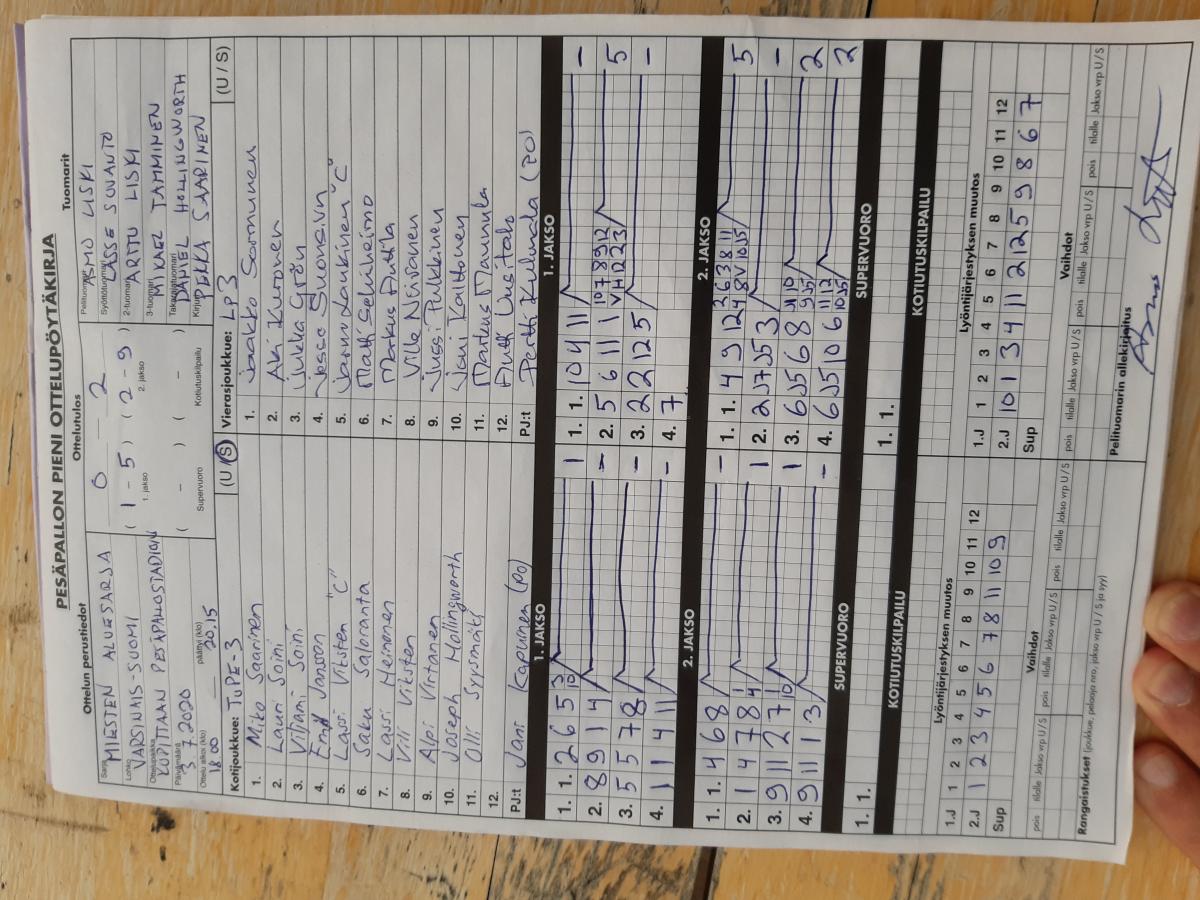 PESÄPALLON PIENI OTTELUPÖYTÄKIRJA
Ottelun perustiedot
Ottelutulos
Tuomarit
Sarja MIESTEN ALUESARJA
Lohko VARSINAIS-SUOMI
Ottelupaikka KUPITTAAN PESÄPALLOSTADION
Päivämäärä 3.7.2020
Ottelu alkoi (klo) 18.00 päättyi (klo) 20.15
0 2
( 1 - 5 ) ( 2 - 9 )
1. jakso 2. jakso
( - ) ( - )
Supervuoro Kotiutuskilpailu
Pelituomari ASMO LISKI
Syöttötuomari LASSE SUVANTO
2-tuomari ARTTU LISKI
3-tuomari MIKAEL TAMMINEN
Takarajatuomari DANIEL HOLLINGWORTH
Kirjuri PEKKA SAARINEN
Kotijoukkue: TuPe-3 (U / S)
1. Miko Saarinen
2. Lauri Soini
3. Viljami Soini
4. Jansson
5. Lassi Vitisten "C"
6. Saku Saloranta
7. Lassi Heinonen
8. Vili Vitsten
9. Alpi Virtanen
10. Joseph Hollingworth
11. Olli Syysmäki
12.
PJ:t Jani Kapuinen (PO)
Vierasjoukkue: LP3 (U / S)
1. Jaakko Sormunen
2. Aki Kurovien
3. Jukka Grön
4. Jesse Suonsivu
5. Jarno Laukinen "C"
6. Matti Selinheimo
7. Markus Anttila
8. Ville Neivonen
9. Jussi Pukkinen
10. Joni Kalttonen
11. Markus Maunula
12. Antti Uusitalo
PJ:t Pertti Kulmala (PO)
1. JAKSO
1. 1. 2 6 5 3 10 1
2. 8 9 1 4 -
3. 5 5 7 8 -
4. 1 1 4 11 -
1. JAKSO
1. 1. 10 4 11 -
2. 5 6 11 1 5
3. 2 2 12 5 -
4. 7
2. JAKSO
1. 1. 4 6 8 -
2. 1 4 7 8 1
3. 9 11 2 7 1
4. 9 11 1 3 -
2. JAKSO
1. 1. 4 9 12 5
2. 2 J7 J5 3 -
3. 6 J5 6 8 2
4. 6 J5 10 6 2
SUPERVUORO
1. 1.
SUPERVUORO
1. 1.
KOTIUTUSKILPAILU
KOTIUTUSKILPAILU
Lyöntijärjestyksen muutos
1.J 1 2 3 4 5 6 7 8 9 10 11 12
2.J 1 2 3 4 5 6 7 8 11 10 9
Sup
Lyöntijärjestyksen muutos
1.J 1 2 3 4 5 6 7 8 9 10 11 12
2.J 10 1 3 4 11 2 12 5 9 8 6 7
Sup
Vaihdot
pois tilalle Jakso vrp U / S pois tilalle Jakso vrp U / S pois tilalle Jakso vrp U / S
Vaihdot
pois tilalle Jakso vrp U / S pois tilalle Jakso vrp U / S pois tilalle Jakso vrp U / S
Rangaistukset (joukkue, pelaaja nro, jakso vrp U / S ja syy)
Pelituomarin allekirjoitus